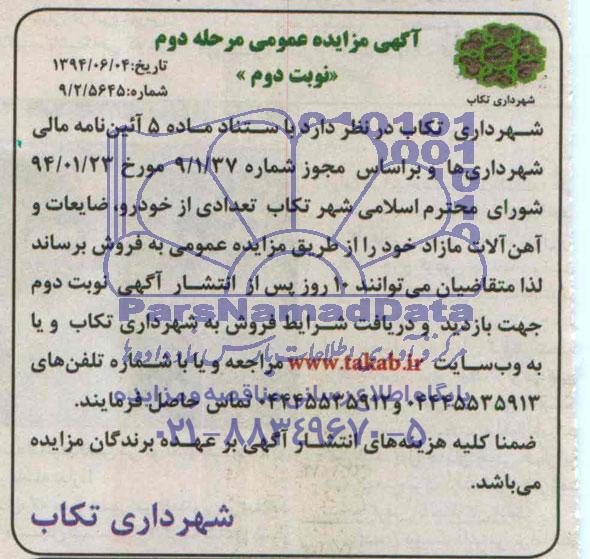 آگهی مزایده عمومی مرحله دوم
«نوبت دوم»
تاریخ:۱۳۹۴/۰۶/۰۴
شماره:۹/۲/۵۶۴۵
شهرداری تکاب
شهرداری تکاب در نظر دارد با ستناد ماده ۵ آئین‌نامه مالی
شهرداری‌ها و براساس مجوز شماره ۹/۱/۳۷ مورخ ۹۴/۰۱/۲۳
شورای محترم اسلامی شهر تکاب تعدادی از خودرو، ضایعات و
آهن‌آلات مازاد خود را از طریق مزایده عمومی به فروش برساند
لذا متقاضیان می‌توانند ۱۰ روز پس از انتشار آگهی نوبت دوم
جهت بازدید و دریافت شرایط فروش به شهرداری تکاب و یا
به وب‌سایت www.takab.ir مراجعه و یا با شماره تلفن‌های
۰۴۴۴۵۵۳۵۹۱۳ و ۰۴۴۴۵۵۳۵۹۱۲ تماس حاصل فرمایند.
ضمنا کلیه هزینه‌های انتشار آگهی بر عهده برندگان مزایده
می‌باشد.
شهرداری تکاب
ParsNamadData
پایگاه اطلاع رسانی مناقصه و مزایده
۰۲۱-۸۸۳۴۹۶۷۰-۵